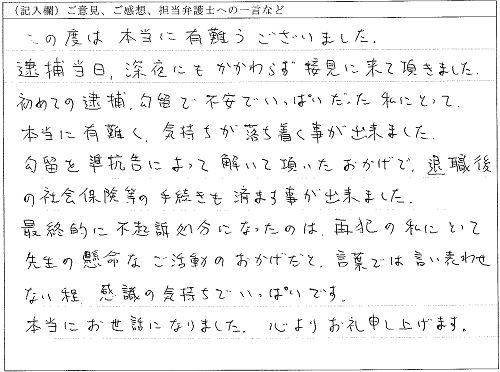 (記入欄)ご意見、ご感想、担当弁護士への一言など
この度は 本当に 有難うございました。
逮捕当日、深夜にもかかわらず 接見に来て頂きました。
初めての逮捕、勾留で不安でいっぱいだった私にとって、
本当に有難く、気持ちが落ち着く事が出来ました。
勾留を準抗告によって解いて頂いたおかげで、退職後
の社会保険等の手続きも済ます事が出来ました。
最終的に不起訴処分になったのは、再犯の私にとって
先生の懸命なご活動のおかげだと、言葉では言い表わせ
ない程、感識の気持ちでいっぱいです。
本当にお世話になりました。心よりお礼申し上げます。